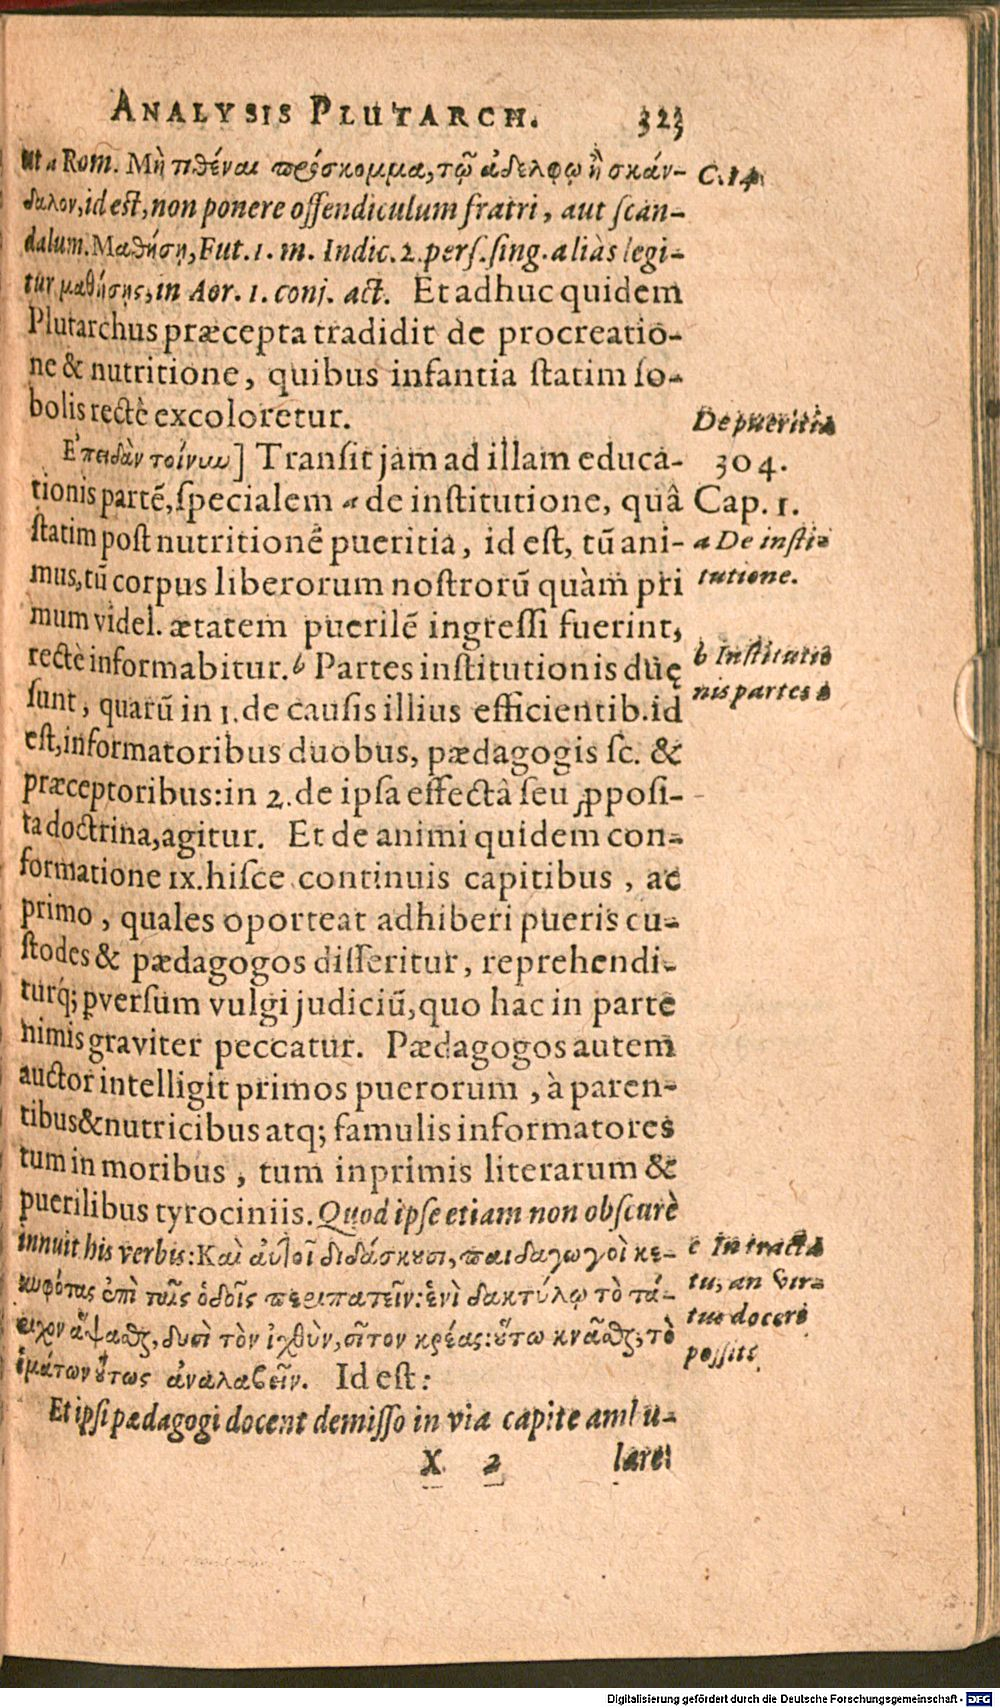 ANALYSIS PLUTARCH. 323
ut a Rom. Μὴ τιθέναι πρόσκομμα, τῷ ἀδελφῷ ἢ σκάν- C. 14.
δαλον, id est, non ponere offendiculum fratri, aut scan-
dalum. Μαθήσῃ, Fut. 1. m. Indic. 2. pers. sing. aliàs legi-
tur μαθήσῃς, in Aor. 1. conj. act. Et adhuc quidem
Plutarchus præcepta tradidit de procreatio-
ne & nutritione, quibus infantia statim so-
bolis rectè excoloretur.
De pueritia
Ἐπειδὰν τοίνυν] Transit jam ad illam educa- 304.
tionis partẽ, specialem a de institutione, quâ Cap. 1.
statim post nutritionẽ pueritia, id est, tũ ani- a De insti-
mus, tũ corpus liberorum nostrorũ quàm pri tutione.
mum videl. ætatem puerilẽ ingressi fuerint,
rectè informabitur. b Partes institutionis duę b Institutio
sunt, quarũ in 1. de causis illius efficientib. id nis partes 2
est, informatoribus duobus, pædagogis sc. &
præceptoribus: in 2. de ipsa effectâ seu ꝓposi-
ta doctrina, agitur. Et de animi quidem con-
formatione IX. hisce continuis capitibus, ac
primo, quales oporteat adhiberi pueris cu-
stodes & pædagogos disseritur, reprehendi-
turq́; ꝑversum vulgi judiciũ, quo hac in parte
nimis graviter peccatur. Pædagogos autem
auctor intelligit primos puerorum, à paren-
tibus & nutricibus atq; famulis informatores
tum in moribus, tum inprimis literarum &
puerilibus tyrociniis. Quod ipse etiam non obscurè
innuit his verbis: Καὶ αὐτοὶ διδάσκουσι, παιδαγωγοὶ κε- c In tracta
κυφότας ἐπὶ ταῖς ὁδοῖς περιπατεῖν: ἑνὶ δακτύλῳ τὸ τά- tu, an vir-
ριχον ἅψασθαι, δυσὶ τὸν ἰχθὺν, σῖτον κρέας: οὕτω κνᾶσθαι, τὸ tus doceri
ἱμάτιον οὕτως ἀναλαβεῖν. Id est: possit.
Et ipsi pædagogi docent demisso in via capite ambu-
X 2 lare:
Digitalisierung gefördert durch die Deutsche Forschungsgemeinschaft - DFG